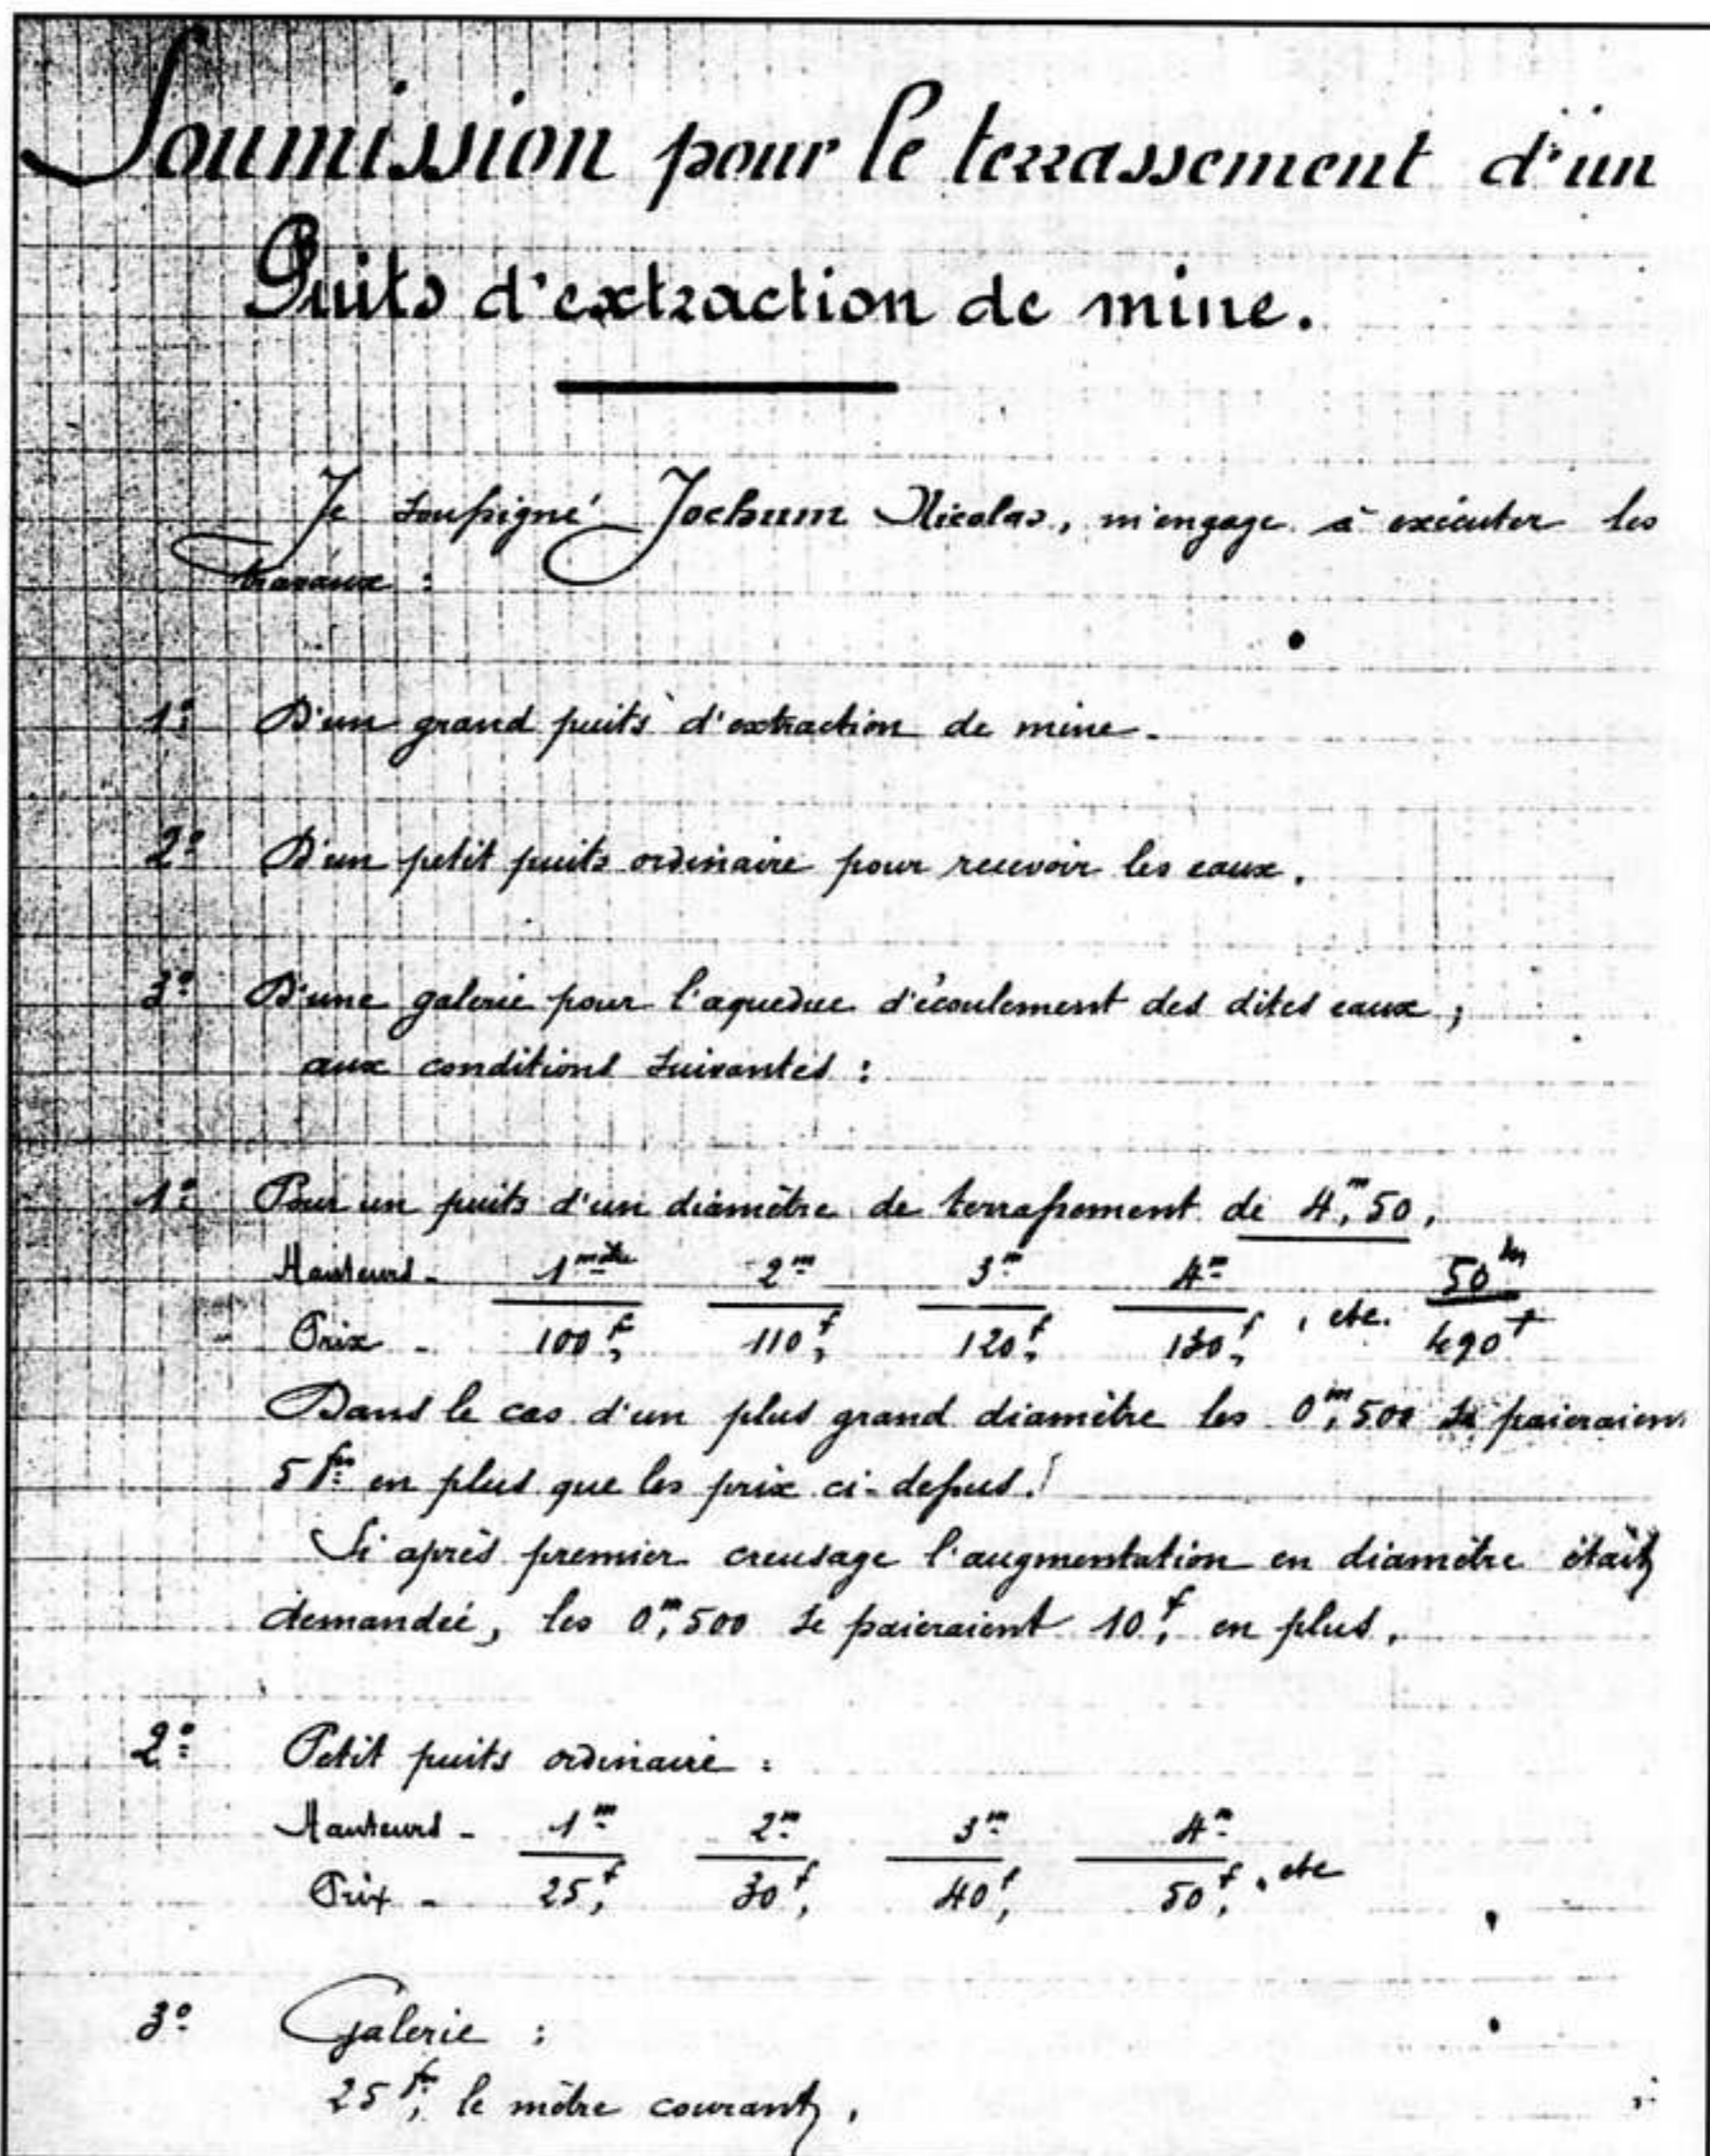 Soumission pour le terrassement d'un
Puits d'extraction de mine.
Je soussigné Jochum Nicolas, m'engage à exécuter les
travaux :
1º D'un grand puits d'extraction de mine.
2º D'un petit puits ordinaire pour recevoir les eaux.
3º D'une galerie pour l'aqueduc d'écoulement des dites eaux ;
aux conditions suivantes :
1º Pour un puits d'un diamètre de terrassement de 4,m50,
Hauteurs - 1 mètre 2m 3m 4m 50m
Prix - 100f, 110f, 120f, 130f, etc. 490f
Dans le cas d'un plus grand diamètre les 0,m500 se paieraient
5fr en plus que les prix ci-dessus.
Si après premier creusage l'augmentation en diamètre était
demandée, les 0,m500 se paieraient 10f, en plus.
2º Petit puits ordinaire :
Hauteurs - 1m 2m 3m 4m
Prix - 25,f 30f, 40f, 50f, etc
3º Galerie :
25fr, le mètre courant,